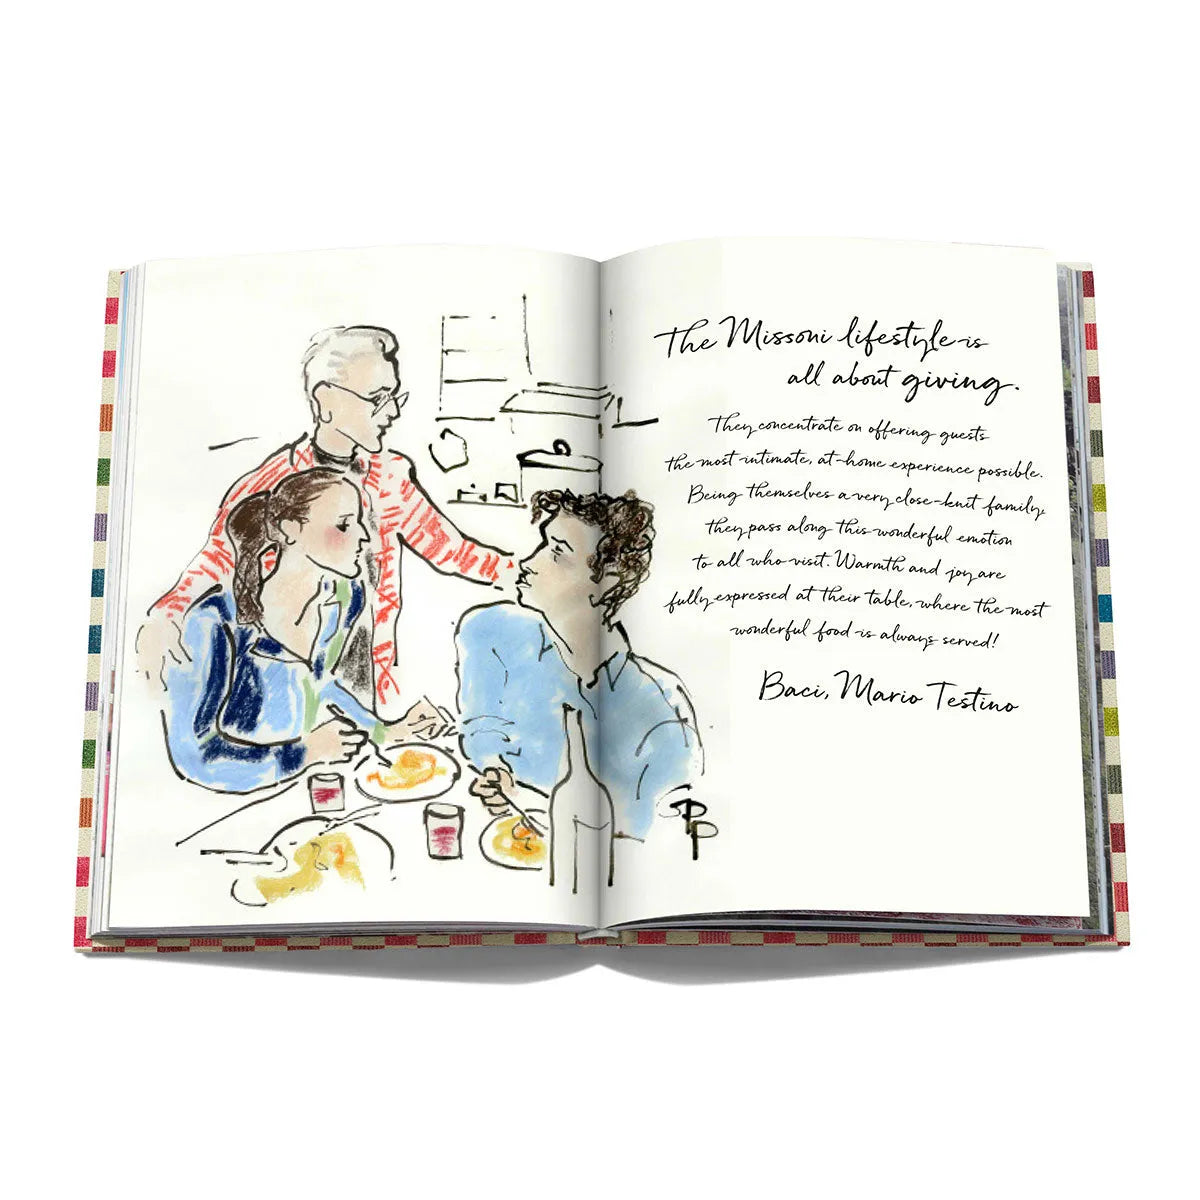 The Missoni lifestyle is
all about giving.
They concentrate on offering guests
the most intimate, at-home experience possible.
Being themselves a very close-knit family,
they pass along this wonderful emotion
to all who visit. Warmth and joy are
fully expressed at their table, where the most
wonderful food is always served!
Baci, Mario Testino
SPP